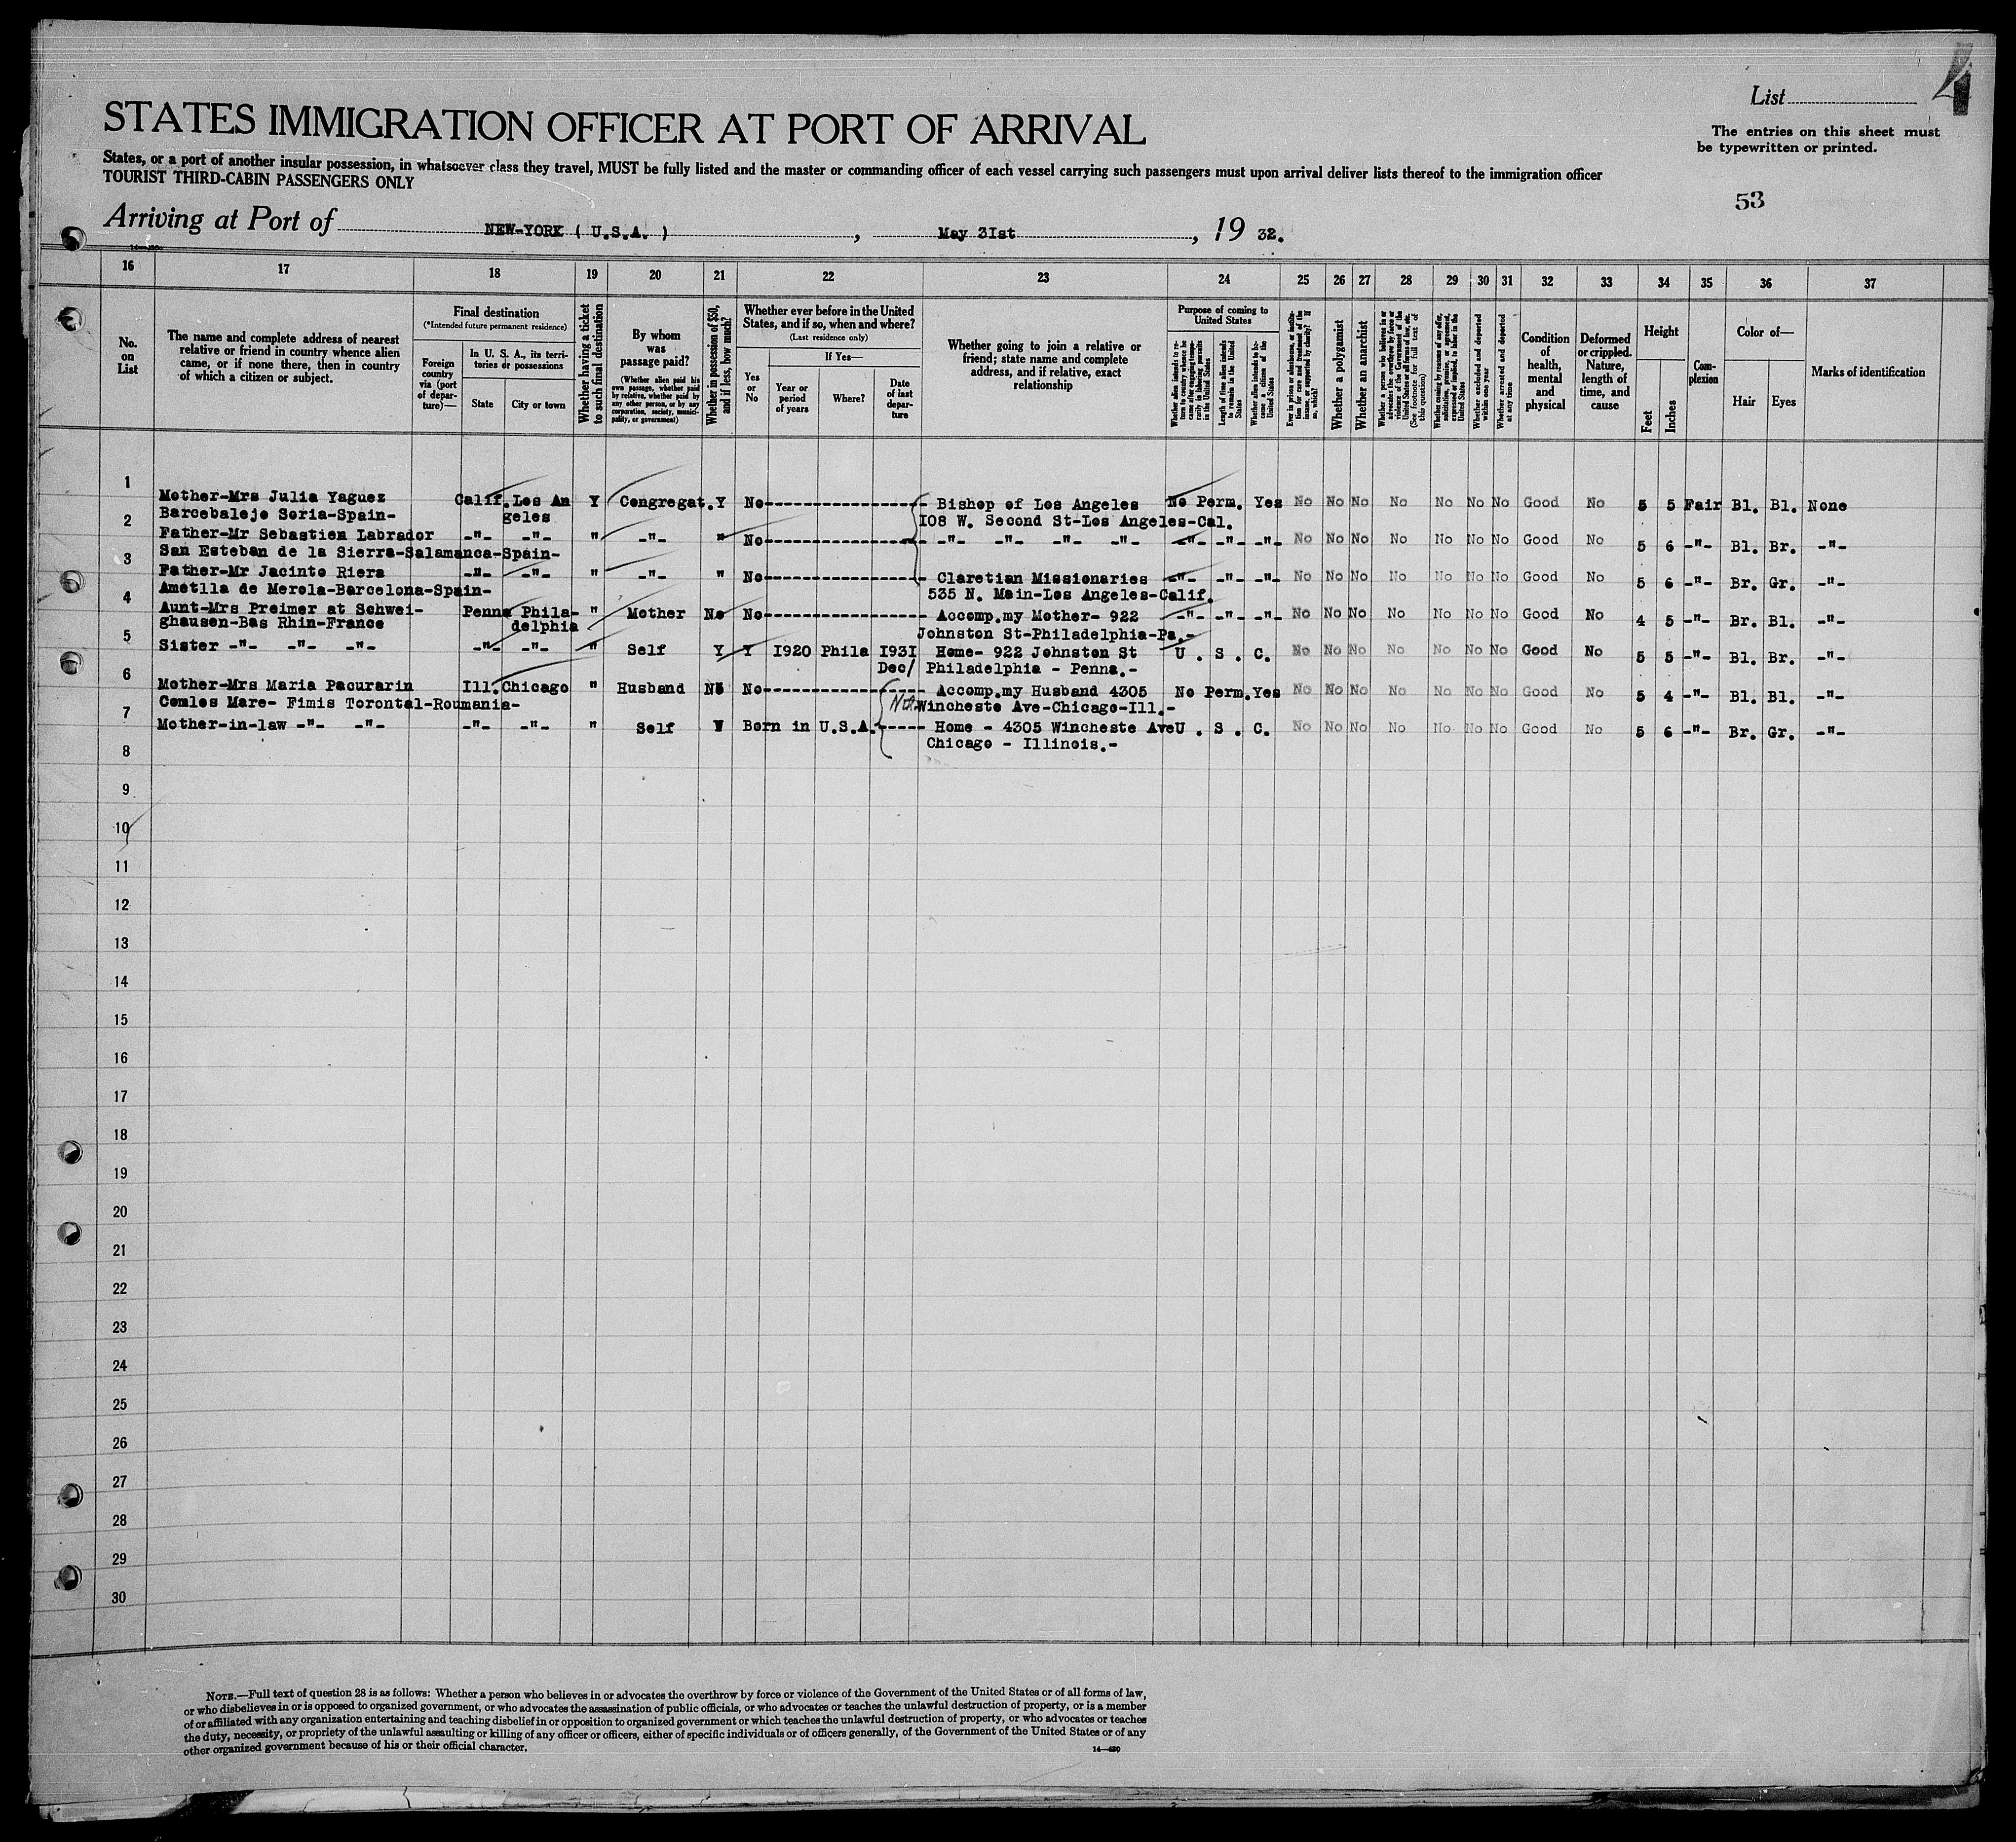 List 4
STATES IMMIGRATION OFFICER AT PORT OF ARRIVAL
The entries on this sheet must
be typewritten or printed.
States, or a port of another insular possession, in whatsoever class they travel, MUST be fully listed and the master or commanding officer of each vessel carrying such passengers must upon arrival deliver lists thereof to the immigration officer
TOURIST THIRD-CABIN PASSENGERS ONLY
53
Arriving at Port of NEW-YORK ( U.S.A. ) , May 3Ist , 19 32.
16 17 18 19 20 21 22 23 24 25 26 27 28 29 30 31 32 33 34 35 36 37
No. on List
The name and complete address of nearest
relative or friend in country whence alien
came, or if none there, then in country
of which a citizen or subject.
Final destination
(*Intended future permanent residence)
Foreign country via (port of departure)—
In U. S. A., its territories or possessions
State
City or town
Whether having a ticket to such final destination
By whom was passage paid?
(Whether alien paid his own passage, whether paid by relative, whether paid by any other person, or by any corporation, society, municipality, or government)
Whether in possession of $50, and if less, how much?
Whether ever before in the United
States, and if so, when and where?
(Last residence only)
Yes or No
If Yes—
Year or period of years
Where?
Date of last departure
Whether going to join a relative or
friend; state name and complete
address, and if relative, exact
relationship
Purpose of coming to United States
Whether alien intends to return to country whence he came after engaging temporarily in laboring pursuits in the United States
Length of time alien intends to remain in the United States
Whether alien intends to become a citizen of the United States
Ever in prison or almshouse, or institution for care and treatment of the insane, or supported by charity? If so, which?
Whether a polygamist
Whether an anarchist
Whether a person who believes in or advocates the overthrow by force or violence of the Government of the United States or all forms of law, etc. (See footnote for full text of this question)
Whether coming by reasons of any offer, solicitation, promise, or agreement, expressed or implied, to labor in the United States
Whether excluded and deported within one year
Whether arrested and deported at any time
Condition of health, mental and physical
Deformed or crippled. Nature, length of time, and cause
Height
Feet
Inches
Complexion
Color of—
Hair
Eyes
Marks of identification
1
Mother-Mrs Julia Yaguez Calif. Los An Y Congregat. Y No Bishop of Los Angeles No Perm. Yes No No No No No No No Good No 5 5 Fair Bl. Bl. None
2 Barcebalejo Soria-Spain- geles I08 W. Second St-Los Angeles-Cal.
Father-Mr Sebastien Labrador -"- -"- " -"- " No -"- -"- -"- -"- -"- -"- -"- No No No No No No No Good No 5 6 -"- Bl. Br. -"-
3 San Esteban de la Sierra-Salamanca-Spain-
Father-Mr Jacinto Riera -"- -"- " -"- " No Claretian Missionaries -"- -"- -"- No No No No No No No Good No 5 6 -"- Br. Gr. -"-
4 Ametlla de Merola-Barcelona-Spain- 535 N. Main-Los Angeles-Calif.
Aunt-Mrs Preimer at Schwei- Penna Phila- " Mother No No Accomp.my Mother- 922 -"- -"- -"- No No No No No No No Good No 4 5 -"- Br. Bl. -"-
ghausen-Bas Rhin-France delphia Johnston St-Philadelphia-Pa.-
5
Sister -"- -"- -"- -"- -"- " Self Y Y I920 Phila I93I Home- 922 Johnston St U . S . C. No No No No No No No Good No 5 5 -"- Bl. Br. -"-
Dec/ Philadelphia - Penna.-
6
Mother-Mrs Maria Pacurarin Ill. Chicago " Husband No No Accomp.my Husband 4305 No Perm. Yes No No No No No No No Good No 5 4 -"- Bl. Bl. -"-
Comlos Mare- Fimis Torontal-Roumania- Wincheste Ave-Chicago-Ill.-
7
Mother-in-law -"- -"- -"- -"- " Self Y Born in U.S.A. Home - 4305 Wincheste Ave U . S . C. No No No No No No No Good No 5 6 -"- Br. Gr. -"-
Chicago - Illinois.-
8
9
10
11
12
13
14
15
16
17
18
19
20
21
22
23
24
25
26
27
28
29
30
NOTE.—Full text of question 28 is as follows: Whether a person who believes in or advocates the overthrow by force or violence of the Government of the United States or of all forms of law,
or who disbelieves in or is opposed to organized government, or who advocates the assassination of public officials, or who advocates or teaches the unlawful destruction of property, or is a member
of or affiliated with any organization entertaining and teaching disbelief in or opposition to organized government or which teaches the unlawful destruction of property, or who advocates or teaches
the duty, necessity, or propriety of the unlawful assaulting or killing of any officer or officers, either of specific individuals or of officers generally, of the Government of the United States or of any
other organized government because of his or their official character.
14—430